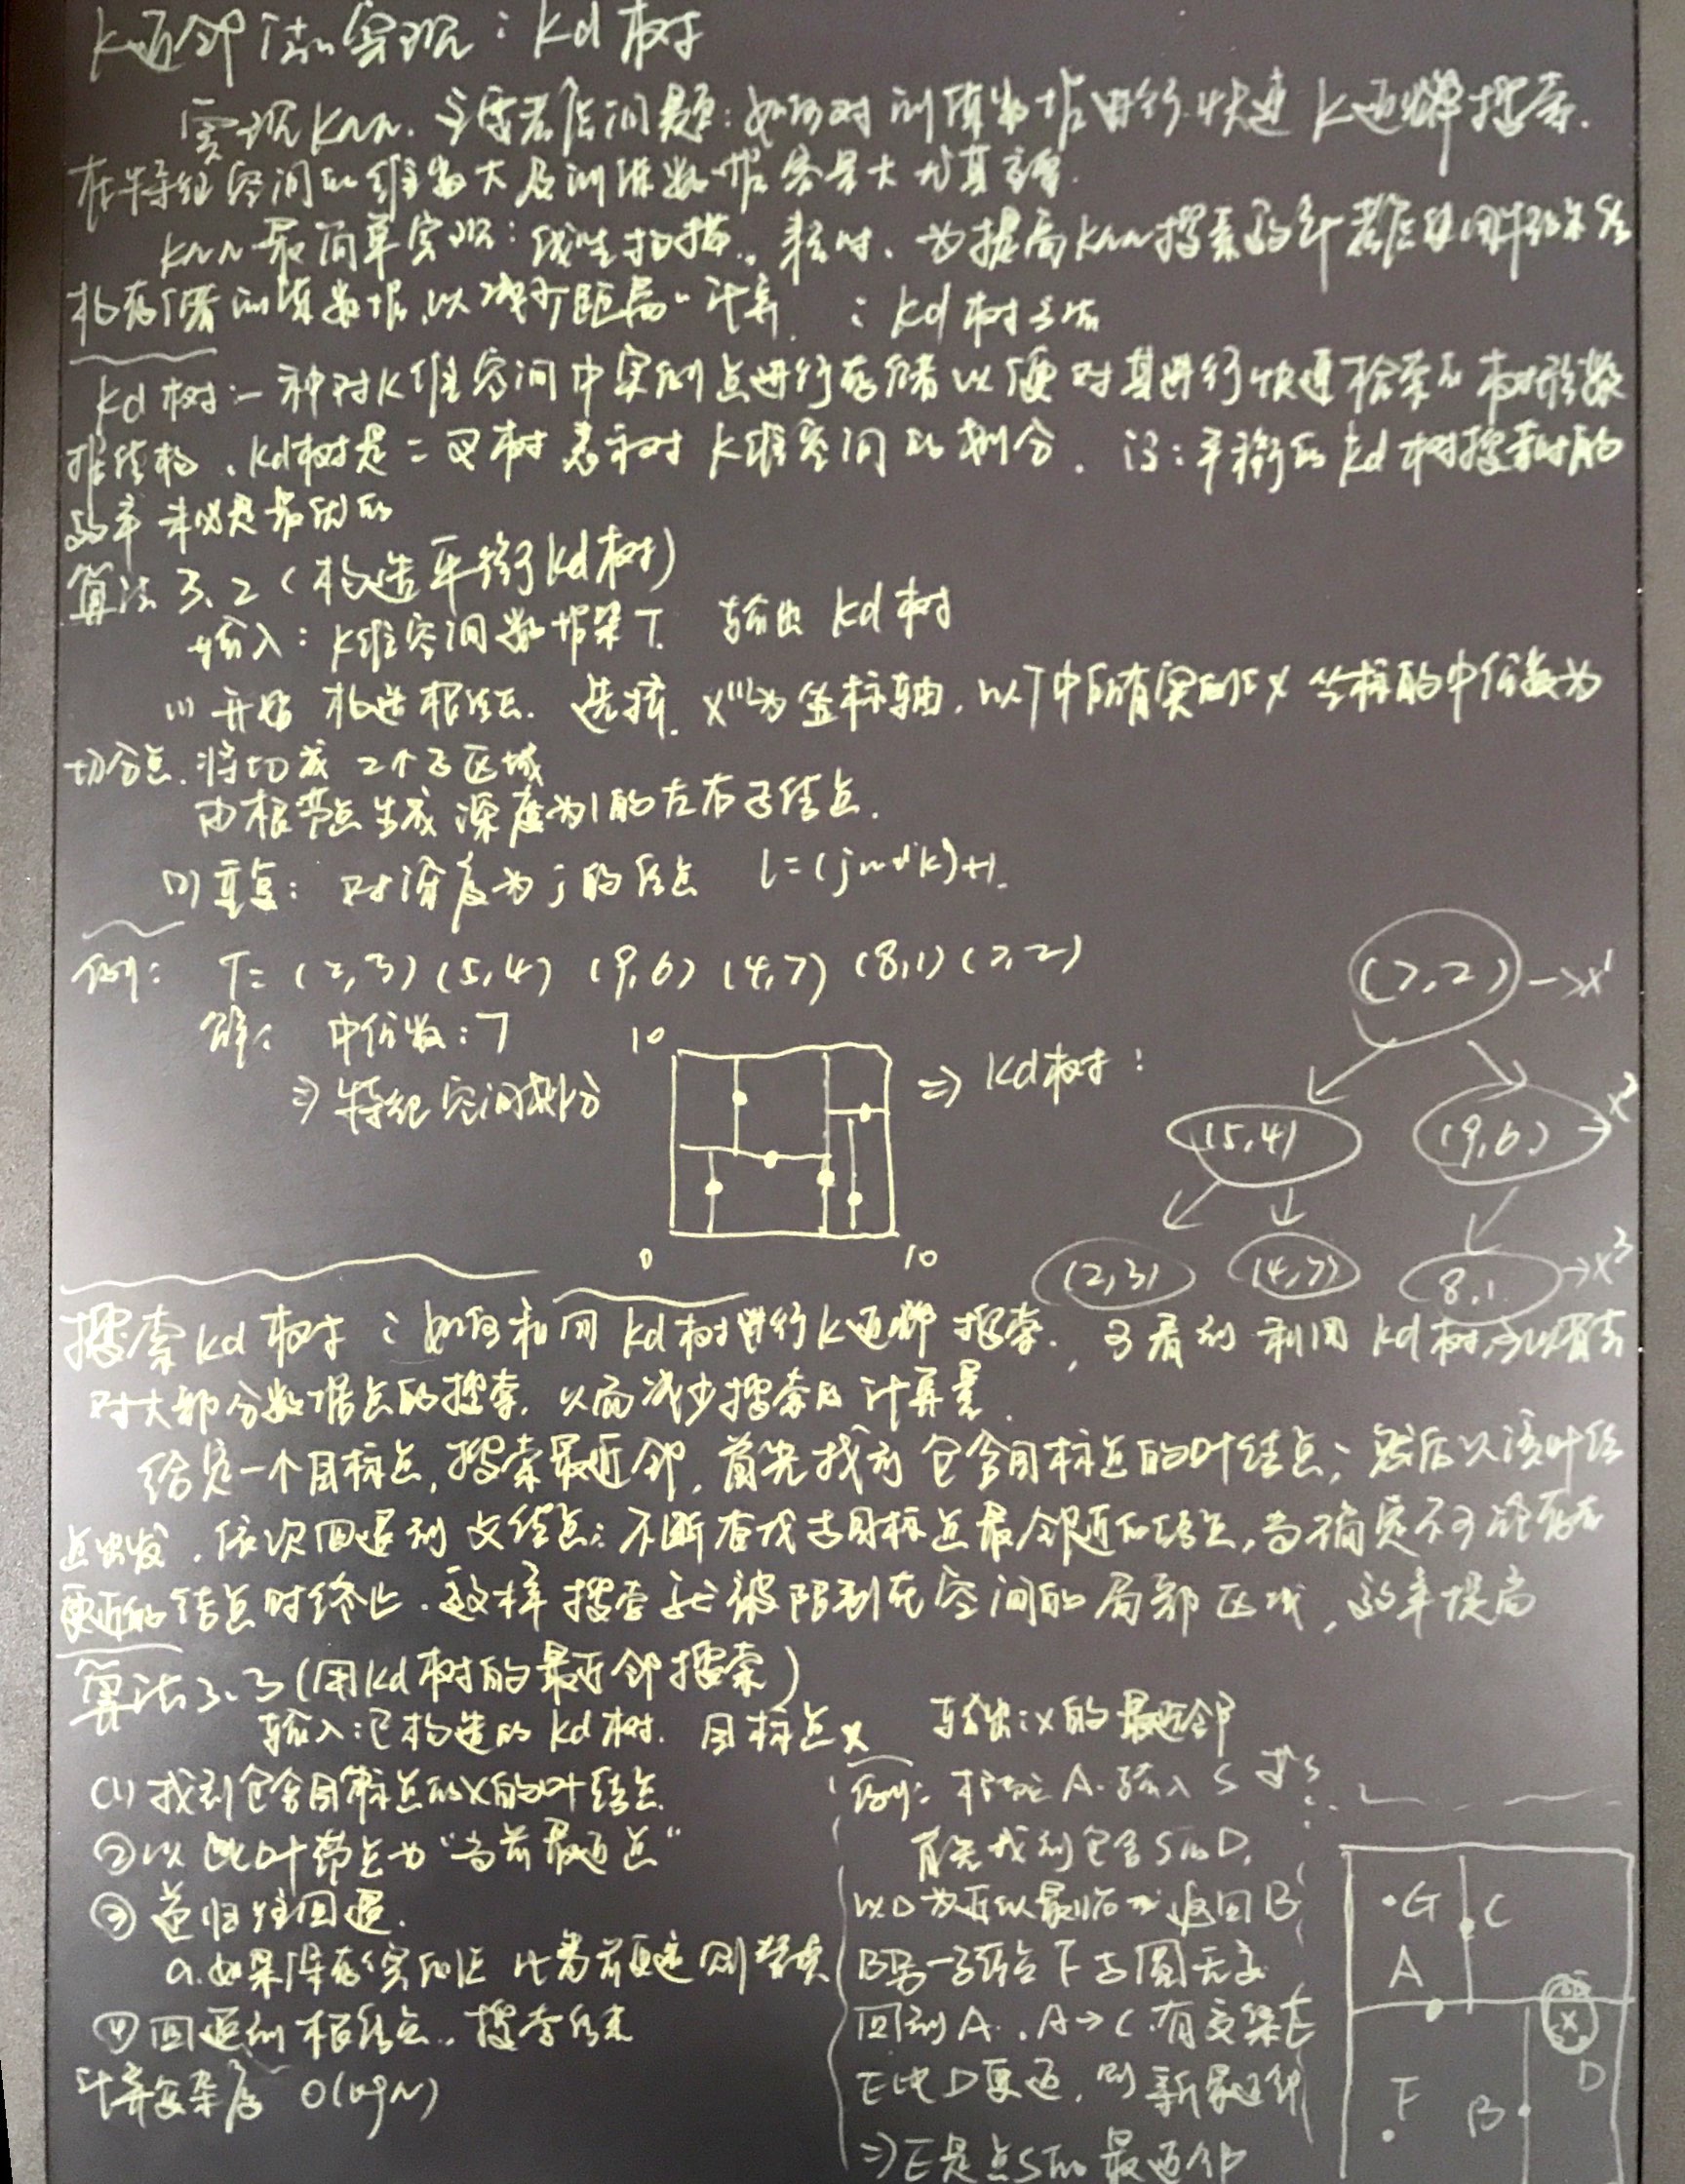 K近邻法的实现：kd树
实现Knn.主要考虑问题：如何对训练数据进行快速K近邻搜索.
在特征空间的维数大及训练数据容量大尤其主要.
Knn最简单实现：线性扫描.. 耗时、为提高Knn搜索效率考虑使用特殊结
构存储训练数据,以减少距离计算. ：kd树方法
kd树:一种对K维空间中实例点进行存储以便对其进行快速检索的树形数
据结构、kd树是二叉树表示对K维空间的划分. 注:平衡的kd树搜索时的
效率未必是最优的
算法3.2(构造平衡kd树)
输入：K维空间数据集T. 输出 kd树
(1)开始 构造根结点. 选择 X⁽¹⁾为坐标轴, 以T中所有实例X坐标的中位数为
切分点.将切成2个子区域
由根节点生成深度为1的左右子结点.
(2)重复：对深度为j的结点 l=(j mod k)+1.
例： T= (2,3) (5,4) (9,6) (4,7) (8,1) (7,2)
解： 中位数：7
⇒特征空间划分
10
0
10
⇒ kd树：
(7,2) →x¹
(5,4) (9,6) →x²
(2,3) (4,7) 8,1 →x³
搜索kd树：如何利用kd树进行K近邻搜索., 可看到利用kd树可以省去
对大部分数据点的搜索, 从而减少搜索的计算量.
给定一个目标点,搜索最近邻,首先找到包含目标点的叶结点；然后以该叶结
点出发,依次回退到父结点；不断查找与目标点最邻近的结点,当确定不可能存在
更近的结点时终止.这样搜索就被限制在空间的局部区域,效率提高
算法3.3(用kd树的最近邻搜索)
输入:已构造的kd树. 目标点x 输出:x的最近邻
(1)找到包含目标点的X的叶结点
②以此叶节点为"当前最近点"
③递归往回退.
a.如果 保存实例点比当前更近则替换
④回退到根结点, 搜索结束
计算复杂度 O(logN)
例：根结点A.输入S 求S
首先找到包含S的D,
以D为近似最临近 返回B
B另一子结点F与圆无交
回到A.,A→C有交集E
E比D更近,则新最近邻
⇒E是点S的最近邻
G C
A
D
F B